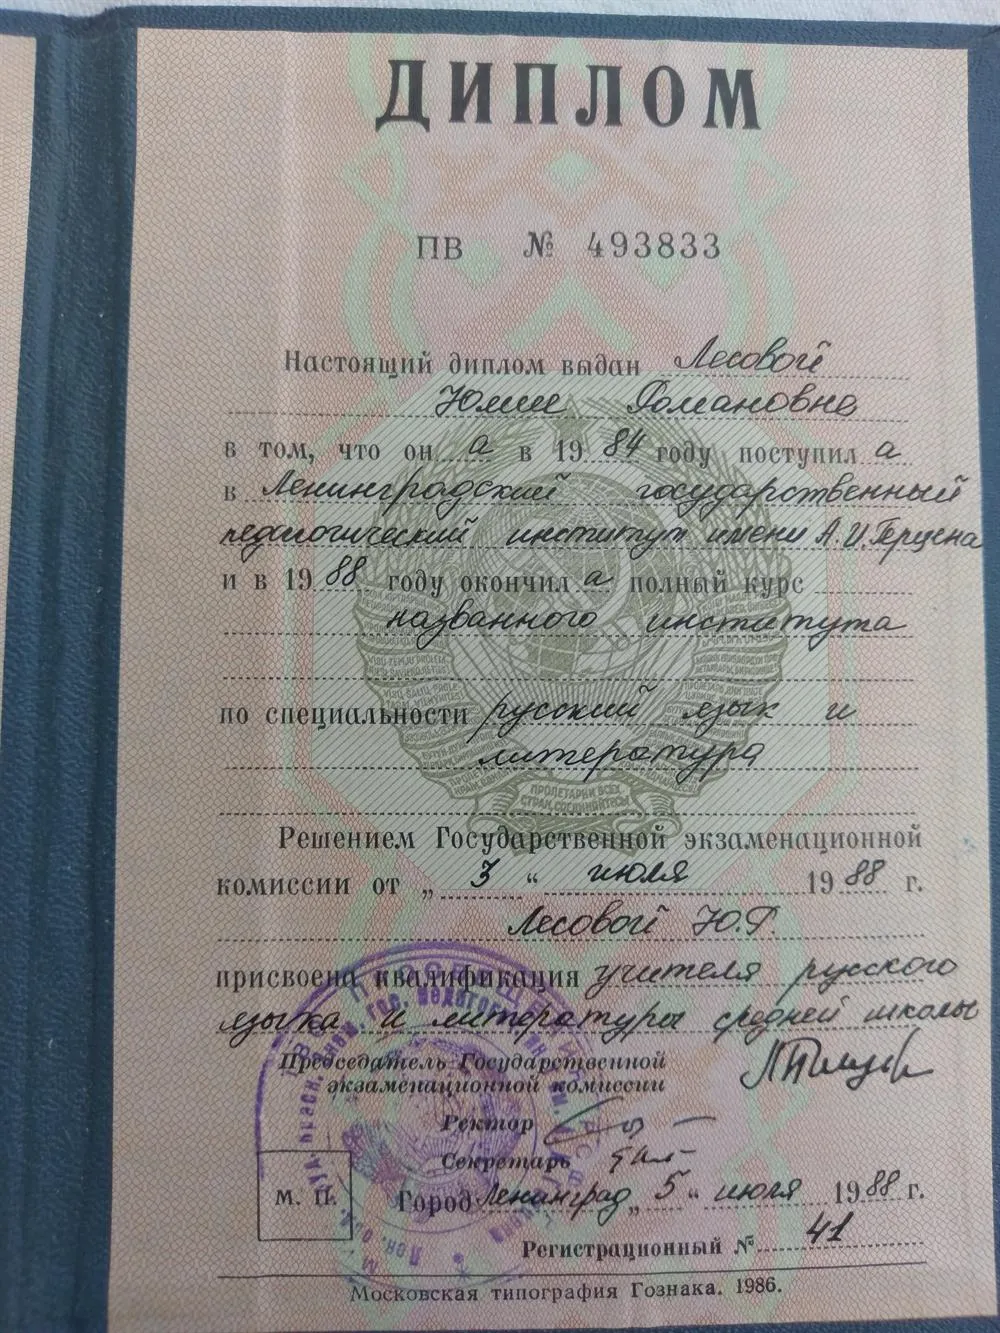 ДИПЛОМ
ПВ № 493833
Настоящий диплом выдан Лесовой
Юлии Романовне
в том, что она в 1984 году поступила
в Ленинградский государственный
педагогический институт имени А.И.Герцена
и в 1988 году окончила полный курс
названного института
по специальности русский язык и
литература
Решением Государственной экзаменационной
комиссии от „ 3 “ июля 1988 г.
Лесовой Ю.Р.
присвоена квалификация учителя русского
языка и литературы средней школы
Председатель Государственной
экзаменационной комиссии
Ректор
Секретарь
М. П.
Город Ленинград „ 5 “ июля 1988 г.
Регистрационный № 41
Московская типография Гознака. 1986.
ПРОЛЕТАРИИ ВСЕХ
СТРАН, СОЕДИНЯЙТЕСЬ